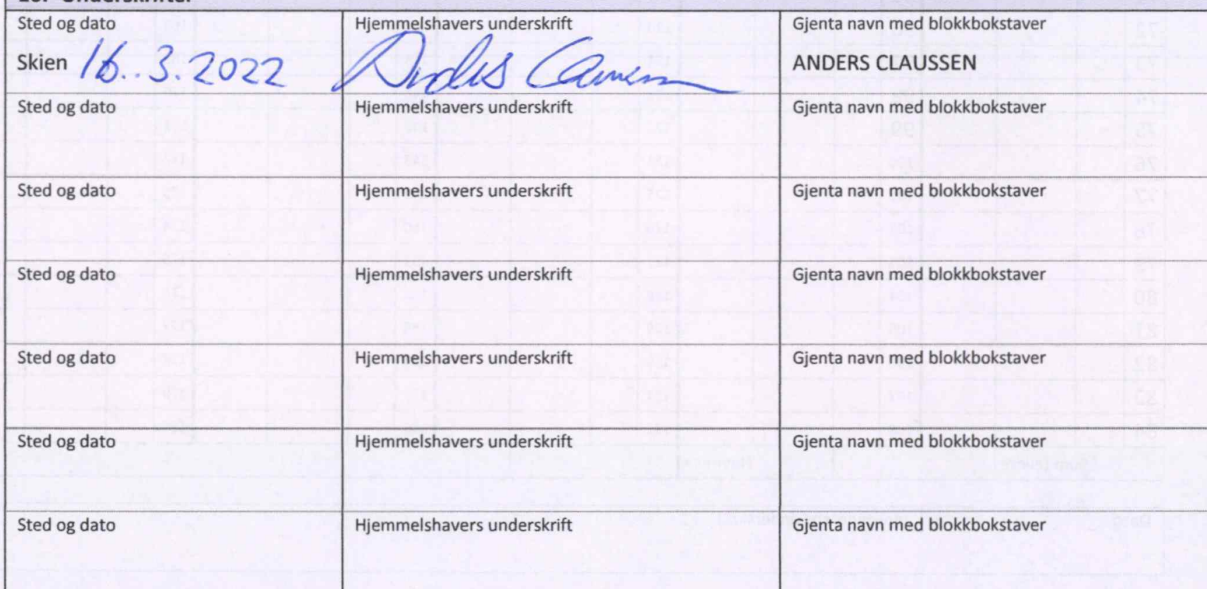 Underskrifter
Sted og dato Hjemmelshavers underskrift Gjenta navn med blokkbokstaver
Skien 16..3.2022 Anders Claussen ANDERS CLAUSSEN
Sted og dato Hjemmelshavers underskrift Gjenta navn med blokkbokstaver
Sted og dato Hjemmelshavers underskrift Gjenta navn med blokkbokstaver
Sted og dato Hjemmelshavers underskrift Gjenta navn med blokkbokstaver
Sted og dato Hjemmelshavers underskrift Gjenta navn med blokkbokstaver
Sted og dato Hjemmelshavers underskrift Gjenta navn med blokkbokstaver
Sted og dato Hjemmelshavers underskrift Gjenta navn med blokkbokstaver